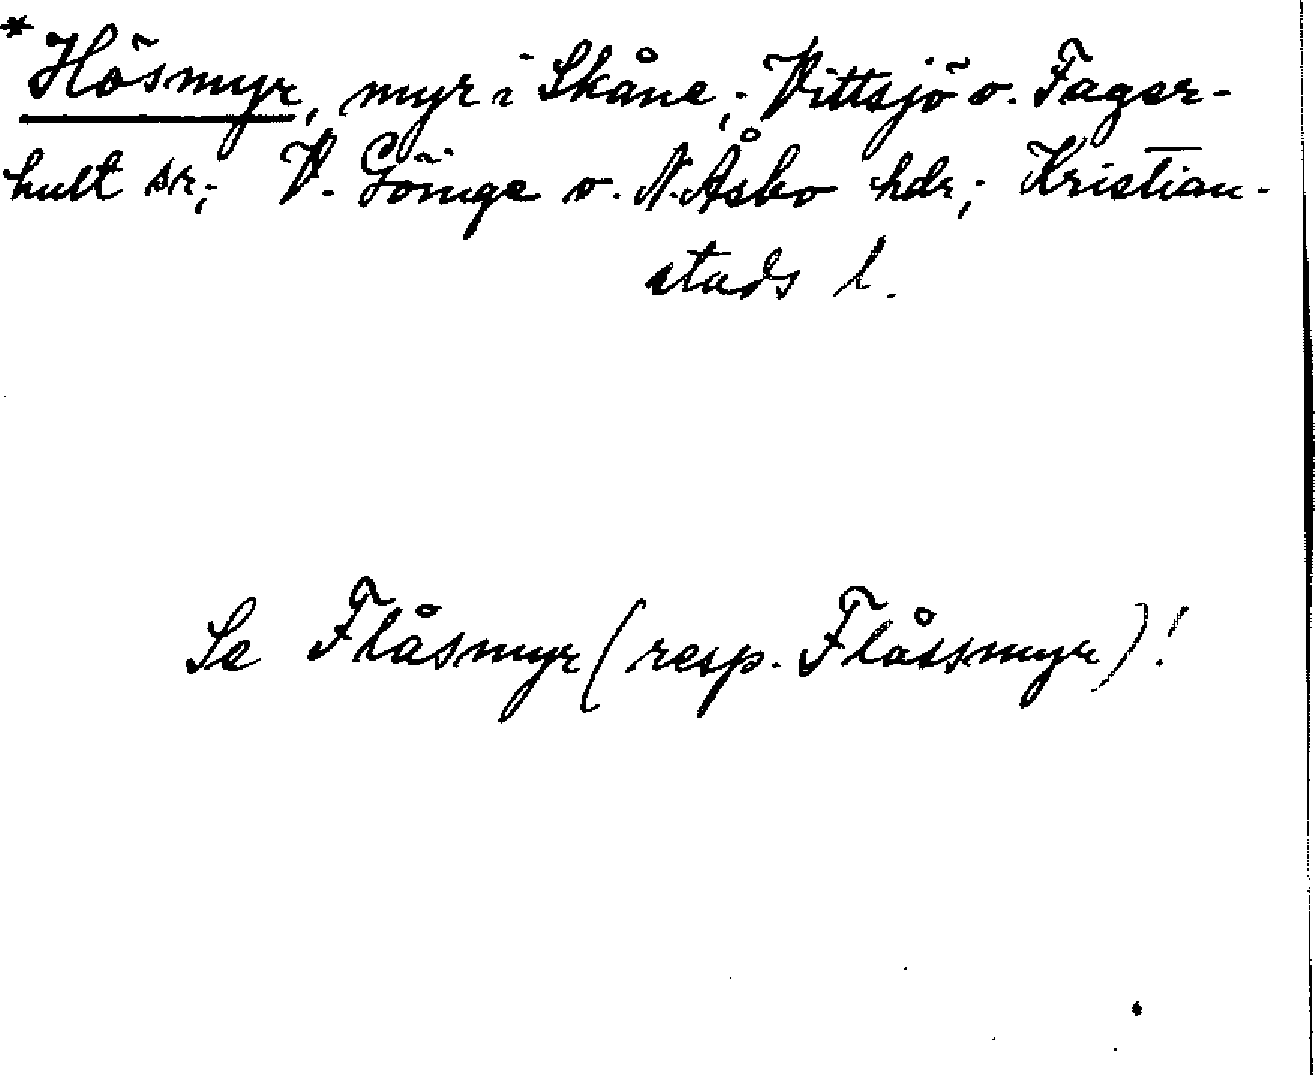 *Hösmyr, myr i Skåne; Vittsjö o. Fager-
hult sr; V. Göinge o. N. Åsbo hdr; Kristian-
stads l.
Se Flåsmyr (resp. Flåssmyr)!